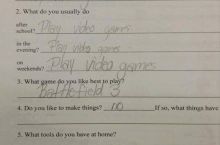 2. What do you usually do
after school? Play video games
in the evening? Play video games
on weekends? Play video games
3. What game do you like best to play?
Battlefield 3
4. Do you like to make things? no If so, what things have
5. What tools do you have at home?